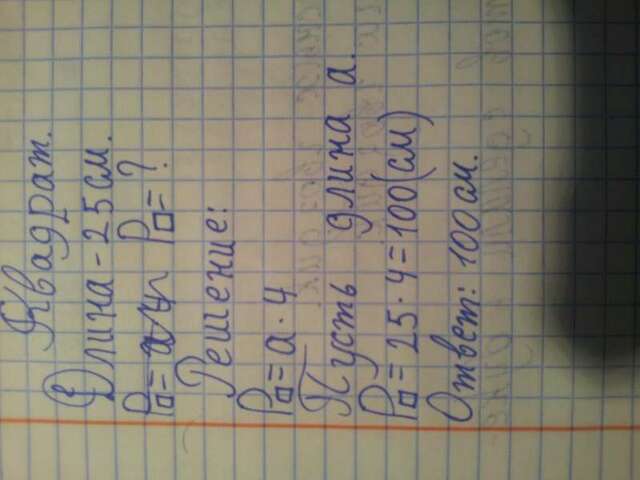 Квадрат.
Длина - 25 см.
P□ = P□ = ?
Решение:
P□ = a · 4
Пусть длина a.
P□ = 25 · 4 = 100 (см)
Ответ: 100 см.